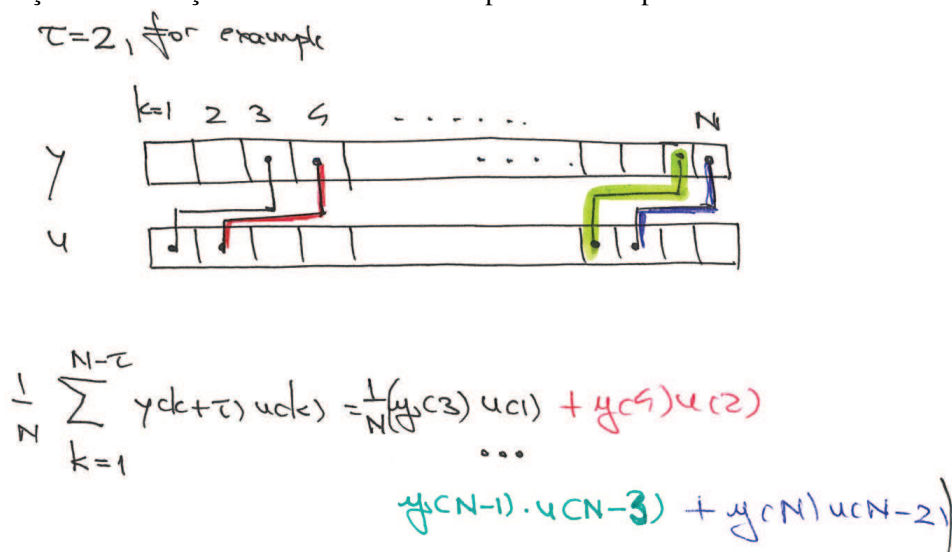 τ=2, for example
k=1 2 3 4 . . . . . . N
y . . . .
u
1/N ∑_{k=1}^{N-τ} y(k+τ) u(k) = 1/N (y(3) u(1) + y(4) u(2)
...
y(N-1) . u(N-3) + y(N) u(N-2))